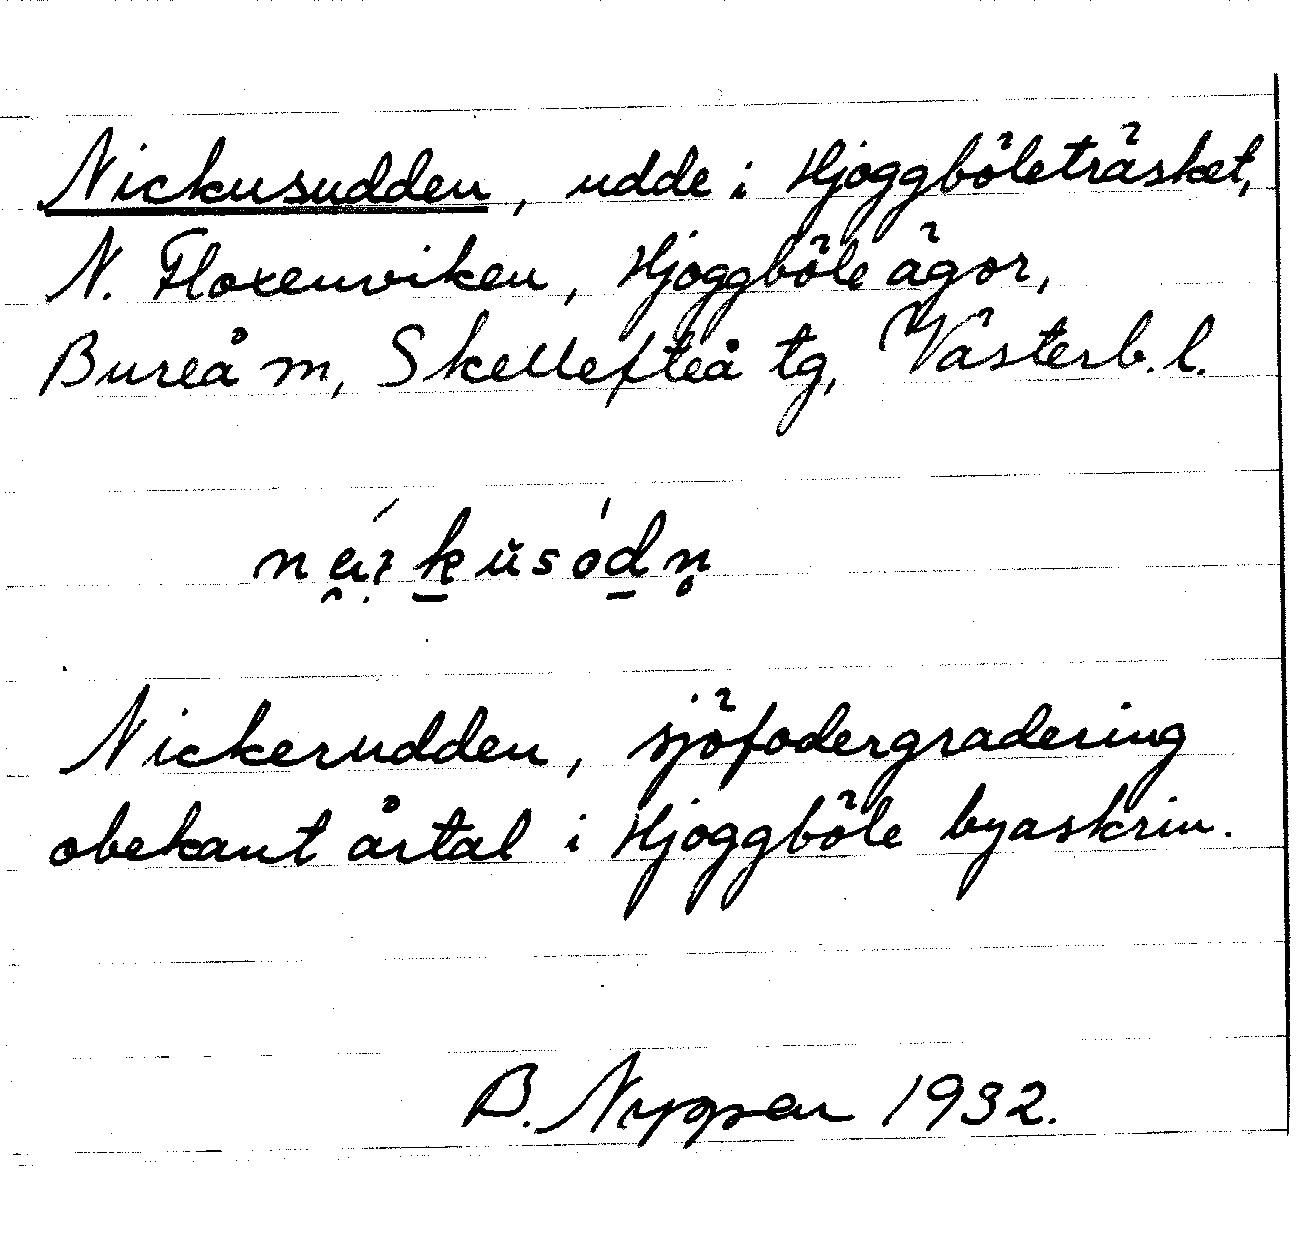 Nickusudden, udde i Hjoggböleträsket,
N. Floxenviken, Hjoggböle ägor,
Bureå m, Skellefteå tg, Västerb. l.
Nickerudden, sjöfodergradering
obekant årtal i Hjoggböle byaskrin.
B. Nyppen 1932.